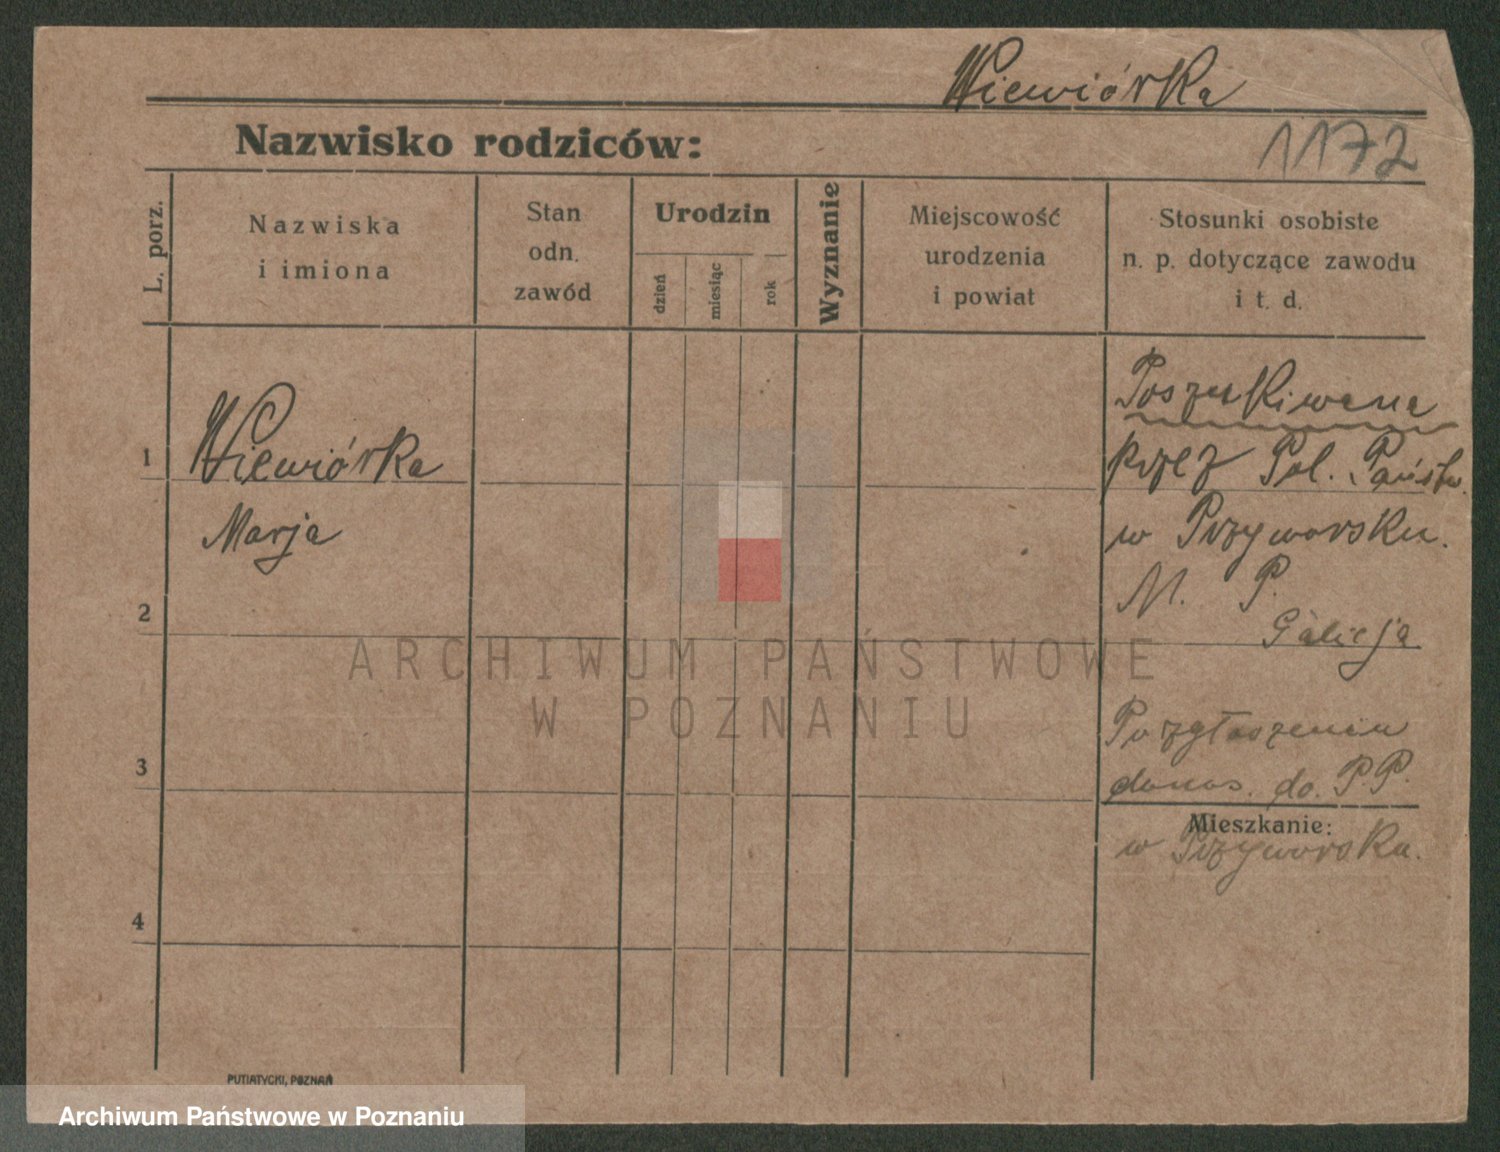 Wiewiórka
Nazwisko rodziców:
1172
L. porz.
Nazwiska
i imiona
Stan
odn.
zawód
Urodzin
dzień
miesiąc
rok
Wyznanie
Miejscowość
urodzenia
i powiat
Stosunki osobiste
n. p. dotyczące zawodu
i t. d.
1
Wiewiórka
Marja
2
3
4
Poszukiwana
przez Pol. Państw.
w Przyworsku.
M. P.
Galicja
Po zgłoszeniu
donos. do. P.P.
Mieszkanie:
w Przyworsku.
ARCHIWUM PAŃSTWOWE
W POZNANIU
PUTIATYCKI, POZNAŃ
Archiwum Państwowe w Poznaniu